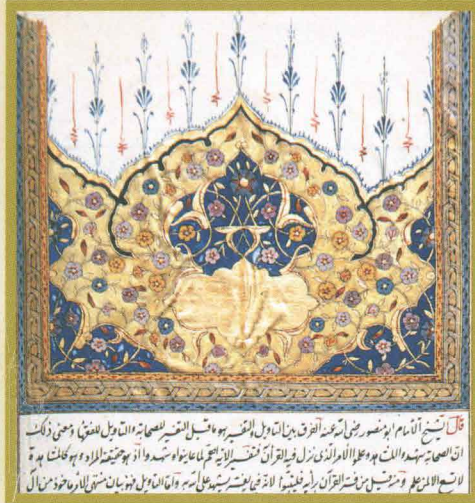 قال الشيخ الامام ابو منصور رضى الله عنه الفرق بين التاويل والتفسير هو ما قيل التفسير للصحابة والتاويل للفقها ومعنى ذلك
ان الصحابة شهدوا المشاهد وعلموا الامر الذى نزل فيه القرآن فتفسير الاية اهم لما عاينوا وشهدوا اذ هو حقيقة المراد وهو كالمشاهدة
لا تسمح الا لمن علم ومنه قيل من فسر القرآن برأيه فليتبوأ لانه فيما يفسر يشهد على الله به واما التاويل فهو بيان منتهى الامر مأخوذ من آل